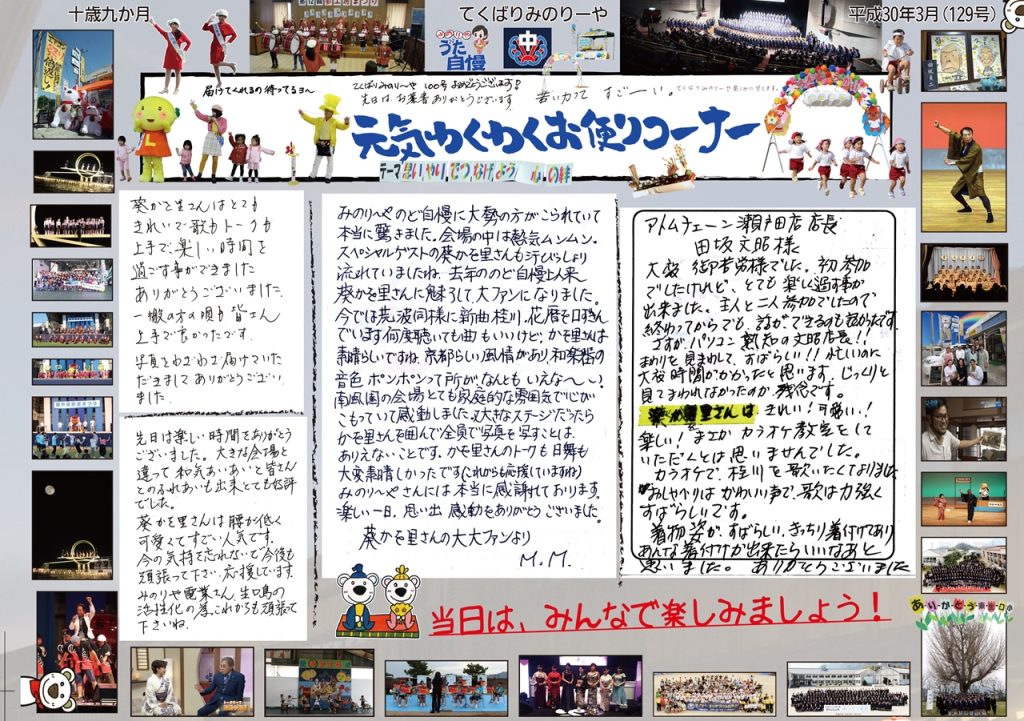 十歳九か月
てくばりみのりーや
平成30年3月(129号)
みのりーや
うた
自慢
中
届けてくれるの待ってるヨ〜
てくばりみのりーや 100号 おめでとうございます!
先日は、お葉書ありがとうございます
若い力って すごーい。
元気わくわくお便りコーナー
テーマ 思いやり、で つなげよう 心の絆
葵かを里さんはとても
きれいで歌もトークも
上手で、楽しい時間を
過ごす事ができました
ありがとうございました
一般の方の唄も皆さん
上手で良かったです。
写真もわざわざ届けていた
だきまして ありがとうござい
ました。
先日は楽しい時間をありがとう
ございました。大きな会場と
違って 和気あいあいと皆さん
とのふれあいも出来とても好評
でした。
葵かを里さんは腰が低く
可愛くてすごい人気です。
今の気持を忘れないで今後も
頑張って下さい。応援しています。
みのりや電業さん 生口島の
活性化の為、これからも頑張って
下さいね。
みのり〜やのど自慢に大勢の方がこられていて
本当に驚きました。会場の中は熱気ムンムン。
スペシャルゲストの葵かを里さんも汗びっしょり
流れていましたね。去年ののど自慢以来
葵かを里さんに魅了して、大ファンになりました。
今では荒波同様に新曲桂川、花暦を口ずさん
でいます何度聴いても曲もいいけど、かを里さんは
素晴らしいですね。京都らしい風情があり、和楽器の
音色 ポンポンって所が、なんとも いえな〜い!
南風園の会場とても家庭的な雰囲気で心が
こもっていて感動しました。大きなステージだったら
かを里さんを囲んで全員で写真を写すことは、
ありえないことです。かを里さんのトークも日舞も
大変素晴しかったです(これからも応援していますね)
みのりーやさんには本当に感謝しております。
楽しい一日、思い出 感動をありがとうございました。
葵かを里さんの大大ファンより
M.M.
アトムチェーン瀬戸田店店長
田坂文昭様
大変 御苦労様でした。初参加
でしたけれど、とても楽しく過す事が
出来ました。主人と二人参加でしたので
終わってからでも、話ができるのも良かったです。
さすが、パソコン熟知の文昭店長!!
まわりを見まわして、すばらしい!! 忙しいのに
大変時間がかかったと思います。じっくりと
見てまわれなかったのが 残念です。
葵かを里さんは きれい!可愛い!
楽しい! まさか カラオケ教室をして
いただくとは思いませんでした。
カラオケで、桂川を歌いたくなりました
おしゃべりは かわいい声で、歌は力強く
すばらしいです。
着物姿が、すばらしい、きっちり着付けてあり
あんな着付けが出来たらいいなあと
思いました。 ありがとうございました
当日は、みんなで楽しみましょう!